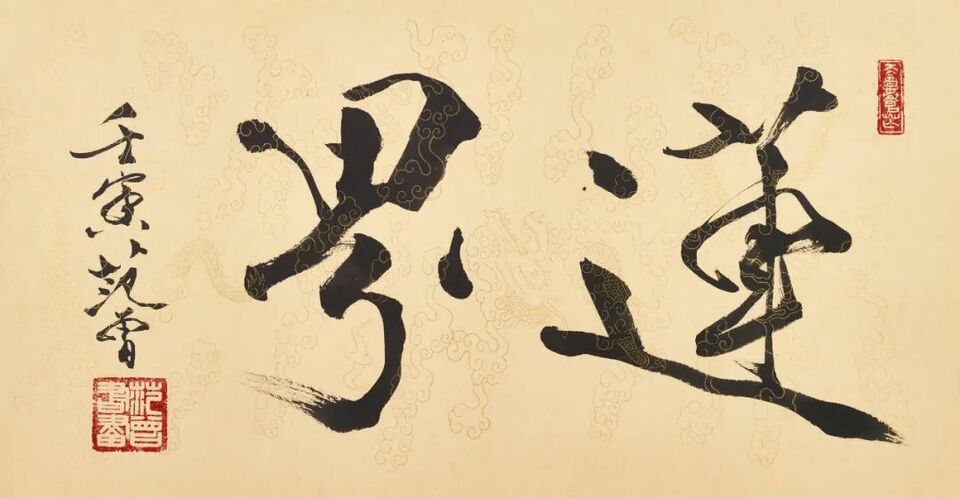 蓮界
壬寅范曾
范曾書畫